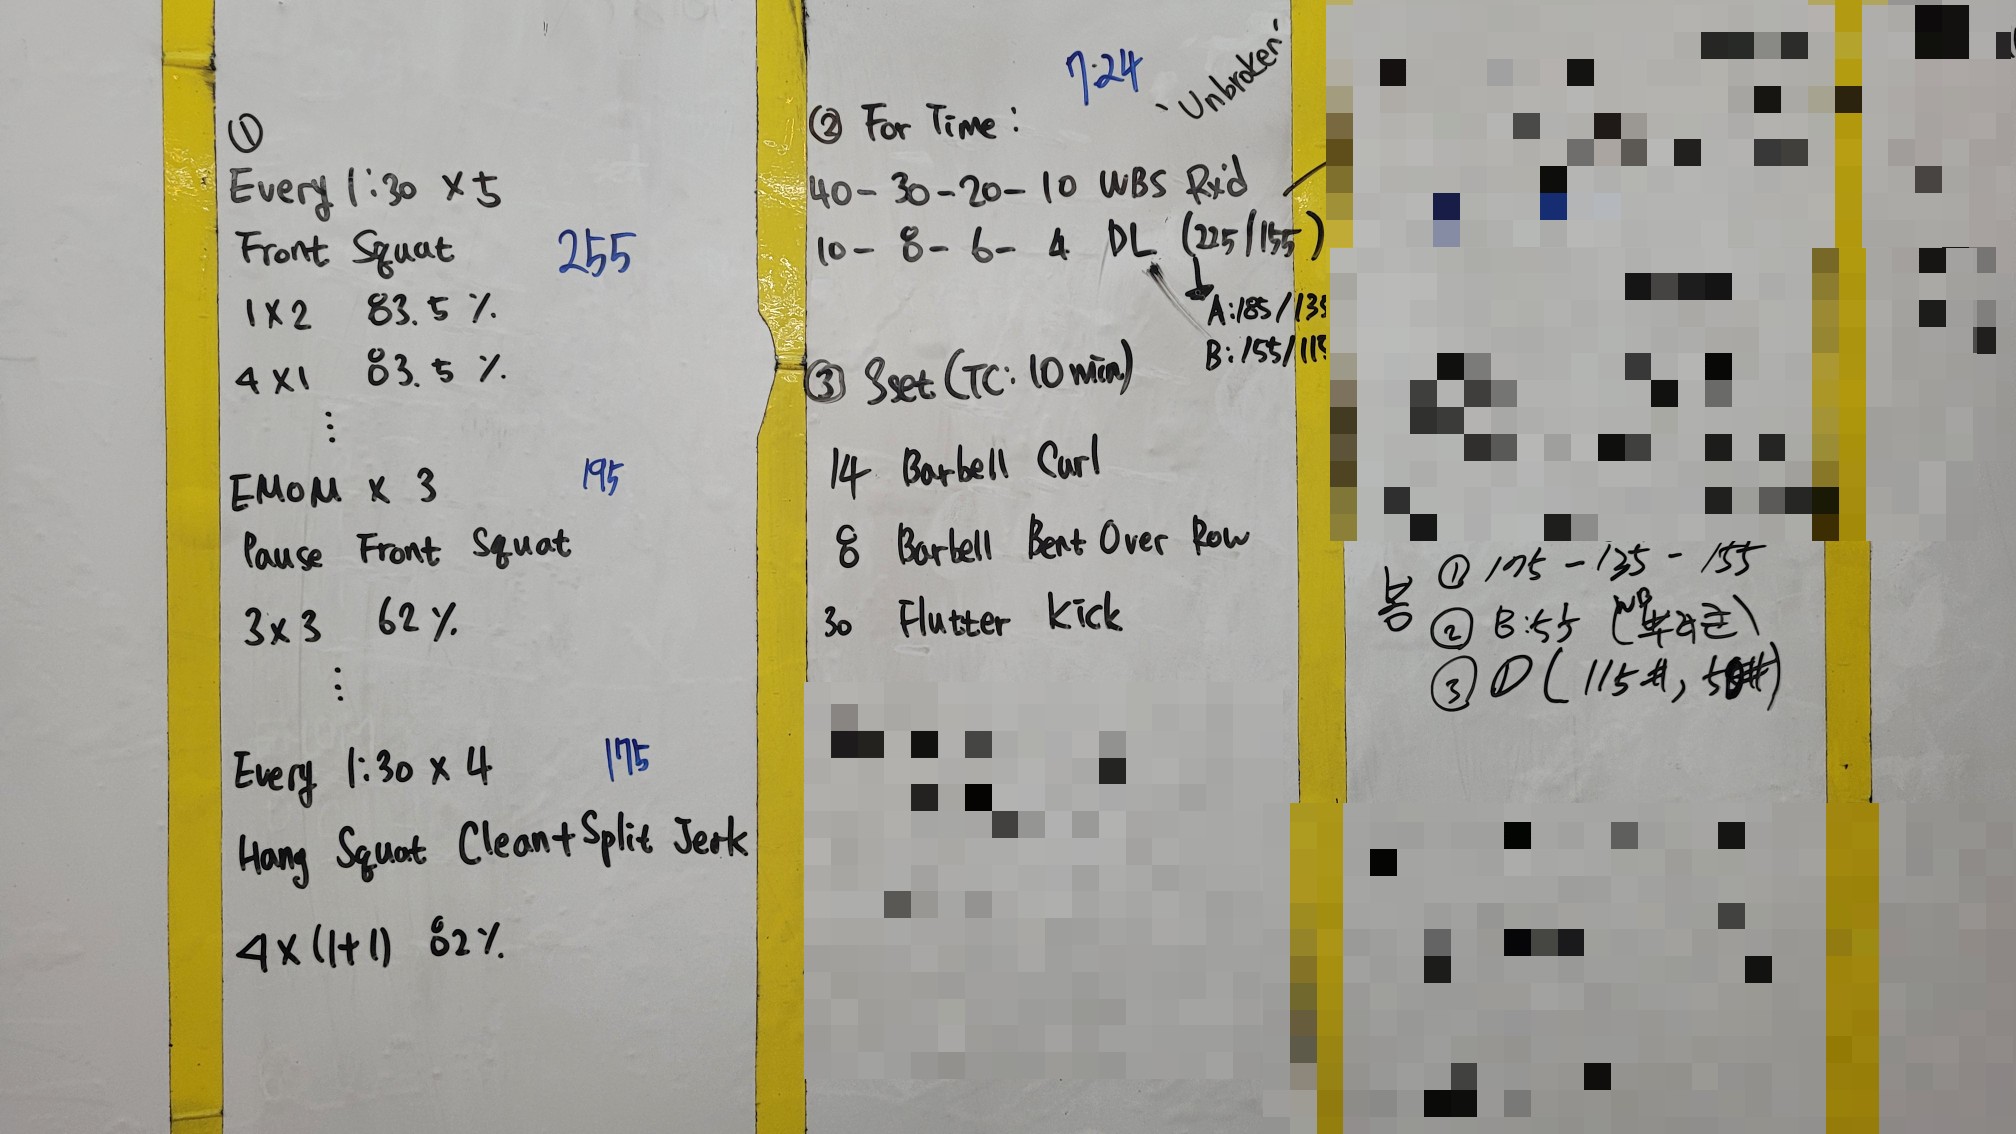 ①
Every 1:30 x 5
Front Squat 255
1x2 83.5 %
4x1 83.5 %
⋮
EMOM x 3 195
Pause Front Squat
3x3 62%
⋮
Every 1:30 x 4 175
Hang Squat Clean+Split Jerk
4x(1+1) 82%
7:24 "Unbroken"
② For Time:
40-30-20-10 WBS Rx'd
10-8-6-4 DL (225/155)
A:185/135
B:155/115
③ 3set (TC: 10min)
14 Barbell Curl
8 Barbell Bent Over Row
30 Flutter Kick
봄 ① 175-135-155
② B:55
③ (115#,